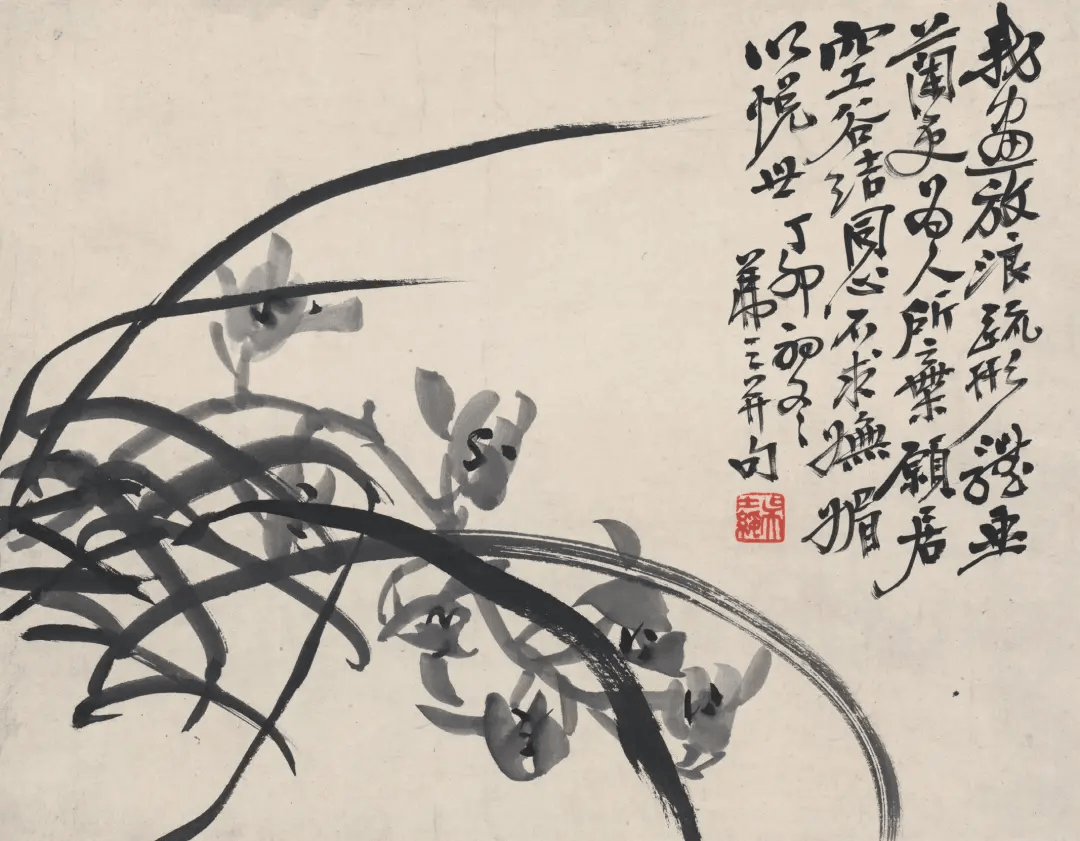 我畫放浪疏形
蘭更為人所棄願居
空谷結同心不求嫵媚
以悦世丁卯初冬
茀之并句
吳士綏